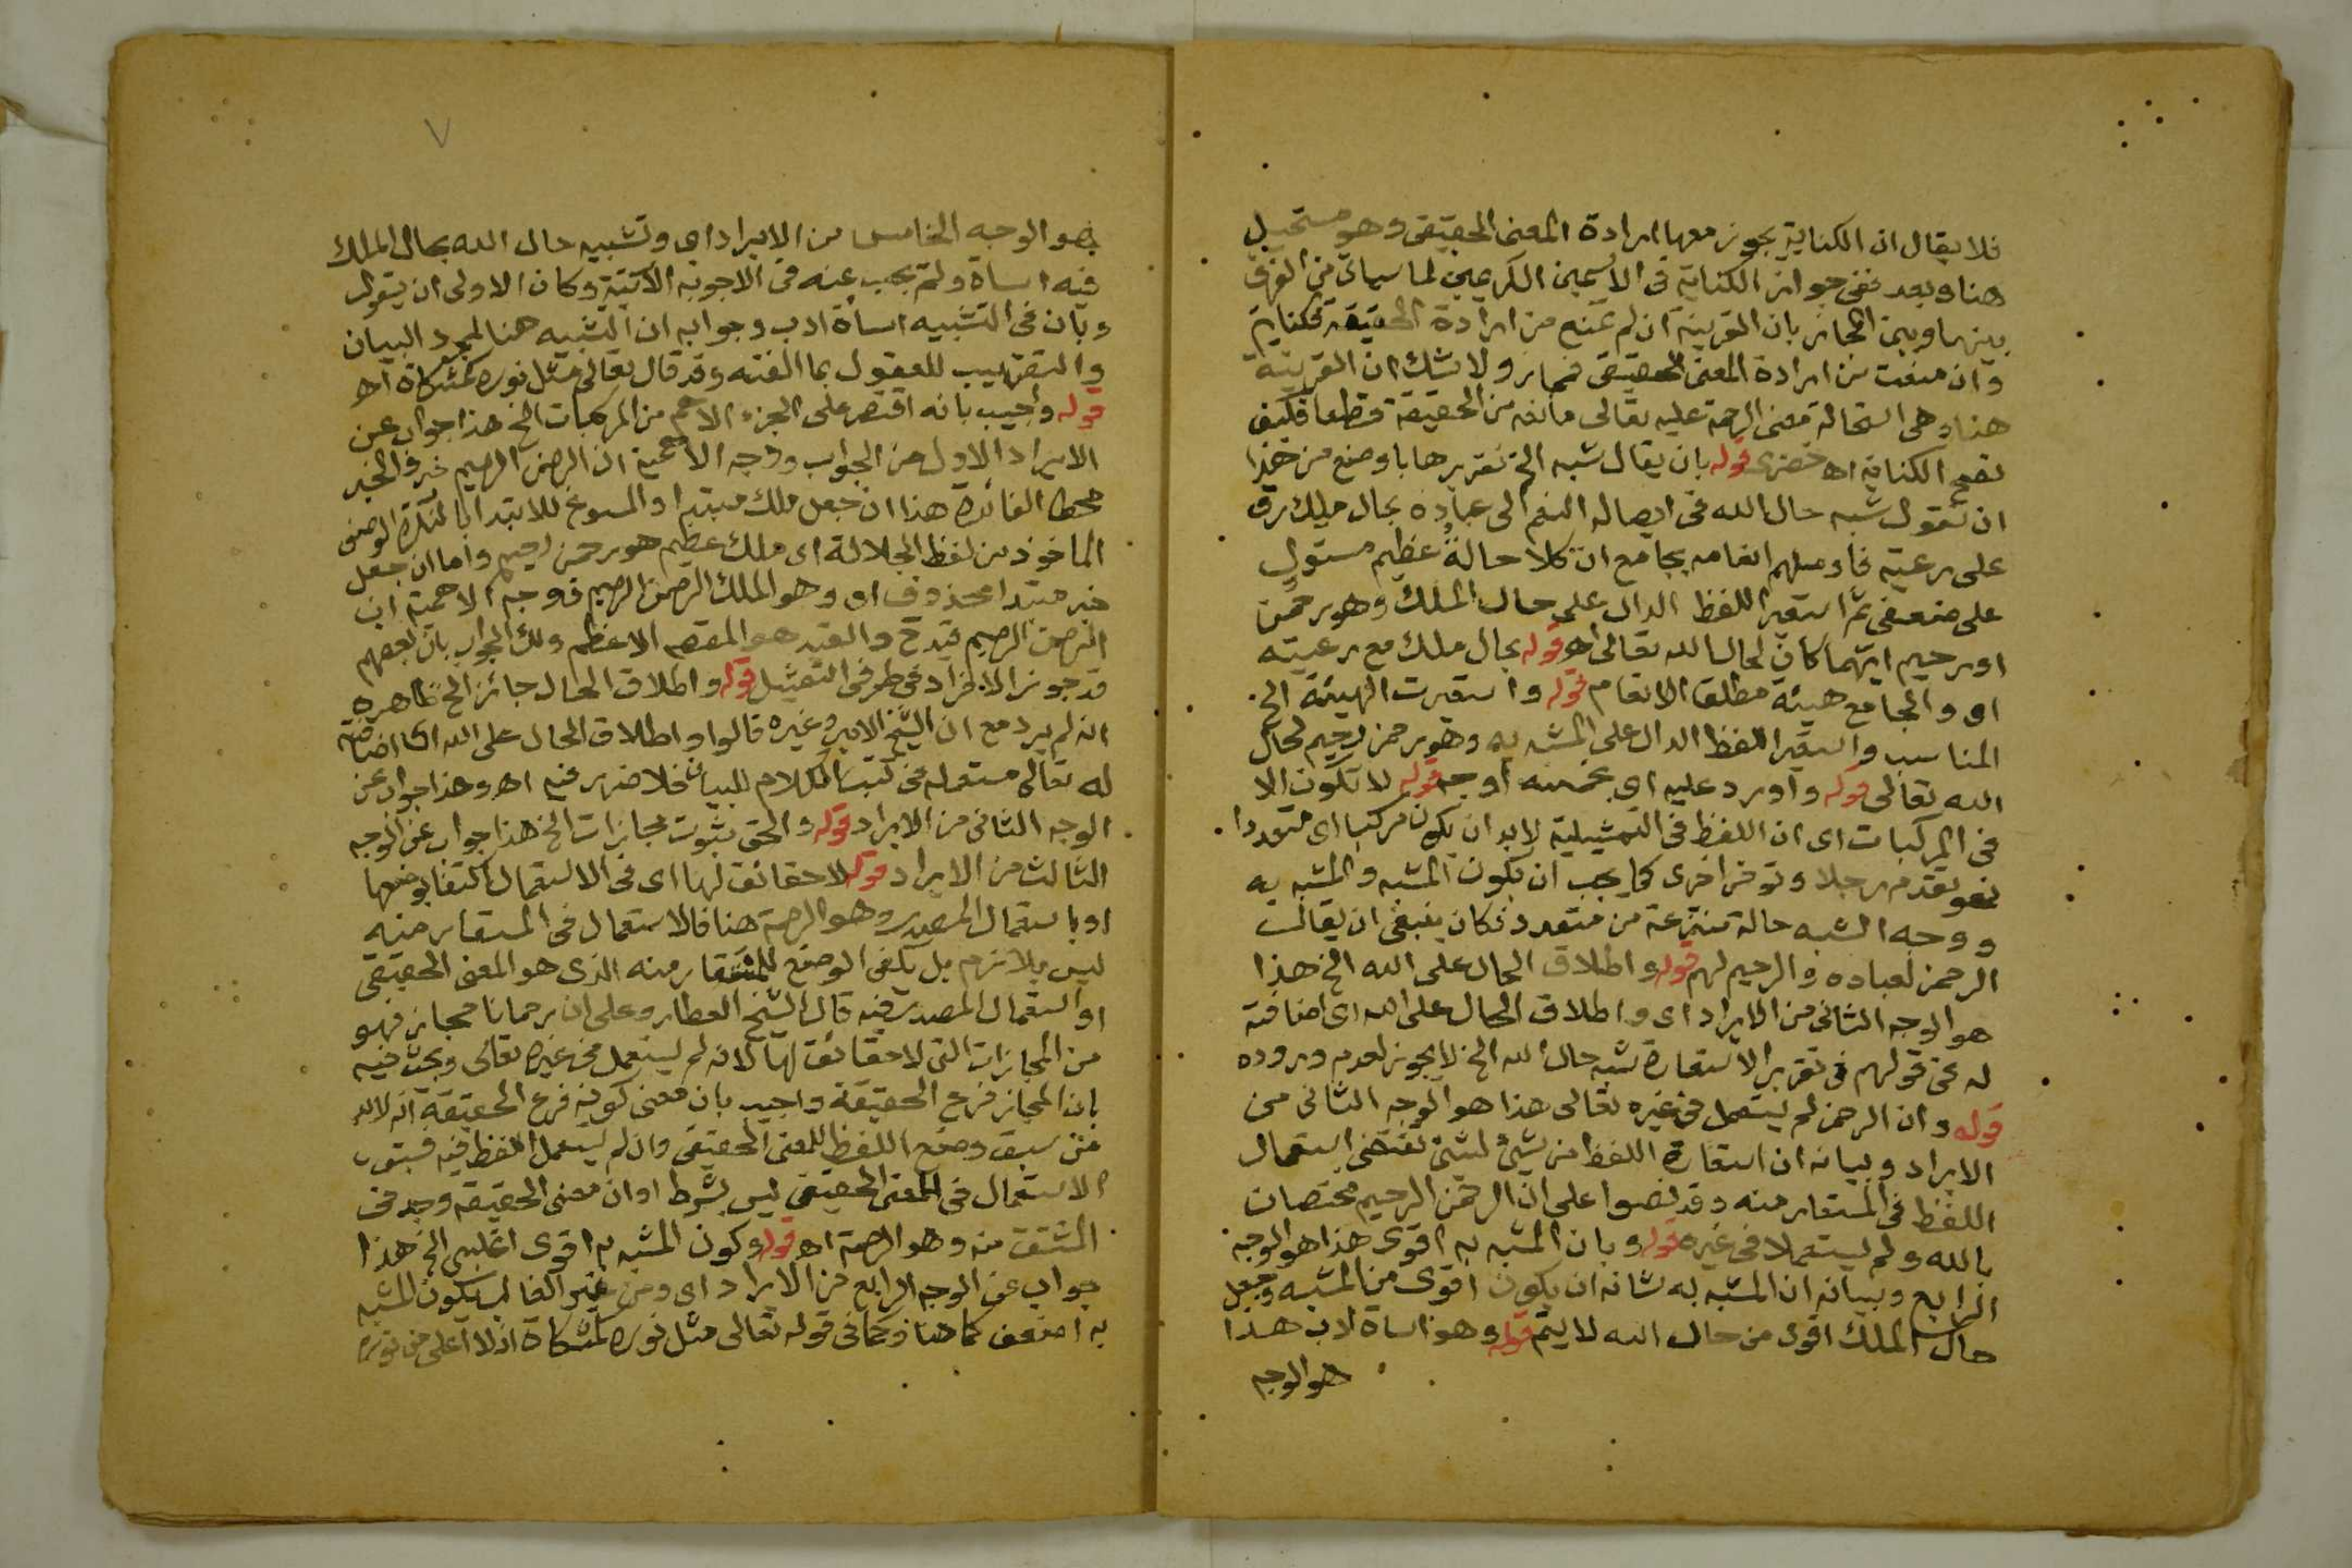 فلا يقال ان الكناية يجوز معها ارادة المعنى الحقيقى وهو مستحيل
هنا وبعد ففى جواز الكناية فى الاسمين الكريمين لما سياتى من الفرق
بينهما وبين المجاز بان القرينة ان لم تمنع من ارادة الحقيقة فكناية
وان منعت من ارادة المعنى الحقيقى فمجاز ولا شك ان القرينة
هنا وهى استحالة معنى الرحمة عليه تعالى مانعه من الحقيقة قطعا فكيف
تصح الكناية اه خضرى قوله بان يقال شبه الخ تقريرها باوضح من هذا
ان تقول شبه حال الله فى ايصاله النعم الى عباده بحال مليك رق
على رعيته فاوصلهم انعامه بجامع ان كلا حالة عظيم مستول
على ضعفى ثم استعير اللفظ الدال على حال الملك وهو رحمن
او رحيم ايهما كان لحال الله تعالى اه قوله بحال ملك مع رعيته
اى والجامع هيئة مطلق الانعام قوله واستعيرت الهيئة الخ
المناسب واستعير اللفظ الدال على المشبه به وهو رحمن رحيم لحال
الله تعالى قوله واورد عليه اى بخمسه اوجه قوله لا تكون الا
فى المركبات اى ان اللفظ فى التمثيلية لا بد ان يكون مركبا اى متعددا
نحو تقدم رجلا وتوخر اخرى كما يجب ان يكون المشبه والمشبه به
ووجه الشبه حالة منتزعة من متعدد فكان ينبغى ان يقال
الرحمن لعباده والرحيم لهم قوله واطلاق الحال على الله الخ هذا
هو الوجه الثانى من الايراد اى واطلاق الحال على الله اى اضافته
له فى قولهم فى تقرير الاستعارة شبه حال الله الخ لا يجوز لعدم وروده
قوله وان الرحمن لم يستعمل فى غيره تعالى هذا هو الوجه الثانى من
الايراد وبيانه ان استعارة اللفظ من شئ لشئ تقتضى استعمال
اللفظ فى المستعار منه وقد نصوا على ان الرحمن الرحيم مختصان
بالله ولم يستعملا فى غيره قوله وبان المشبه به اقوى هذا هو الوجه
الرابع وبيانه ان المشبه به شانه ان يكون اقوى من المشبه وجعل
حال الملك اقوى من حال الله لا يتم قوله وهو اساة ادب هذا
هو الوجه
هو الوجه الخامس من الايراد اى وتشبيه حال الله بحال الملك
فيه اساة ولم يجب عنه فى الاجوبه الآتية وكان الاولى ان يقول
وبان فى التشبيه اساة ادب وجوابه ان التشبيه هنا لمجرد البيان
والتقريب للعقول بما الفته وقد قال تعالى مثل نوره كمشكاة اه
قوله واجيب بانه اقتصر على الجزء الاهم من المركبات الخ هذا جواب عن
الايراد الاول من الجواب ووجه الاهمية ان الرحمن الرحيم خبر والخبر
محط الفائدة هذا ان جعل ملك مبتدا والمسوغ للابتدا بالنكرة الوصف
الماخوذ من لفظ الجلالة اى ملك عظيم هو رحمن رحيم واما ان جعل
خبر مبتدا محذوف اى وهو الملك الرحمن الرحيم فوجه الاهمية ان
الرحمن الرحيم قيد والقيد هو المقصد الاعظم ولك الجواب بان بعضهم
قد جوز الافراد فى طرفى التمثيل قوله واطلاق الحال جائز الخ ظاهره
انه لم يرد مع ان الشيخ الامير وغيره قالوا واطلاق الحال على الله اى اضافته
له تعالى مستعمله فى كتب الكلام للبيان فلا ضرر فيه اه وهذا جواب عن
الوجه الثانى من الايراد قوله والحق ثبوت مجازات الخ هذا جواب عن الوجه
الثالث من الايراد قوله لا حقائق لها اى فى الاستعمال اكتفا بوضعها
او باستعمال المصدر وهو الرحمة هنا فالاستعمال فى المستعار منه
ليس بلازم بل يكفى الوضع للمستعار منه الذى هو المعنى الحقيقى
او استعمال المصدر فيه قال الشيخ العطار وعلى ان رحمانا مجاز فهو
من المجازات التى لا حقائق لها لانه لم يستعمل فى غيره تعالى وبحث فيه
بان المجاز فرع الحقيقة واجيب بان معنى كونه فرع الحقيقة انه لا بد
من سبق وضع اللفظ للمعنى الحقيقى وان لم يستعمل اللفظ فيه فسبق
الاستعمال فى المعنى الحقيقى ليس بشرط او ان معنى الحقيقه وجد فى
المشتق منه وهو الرحمة اه قوله وكون المشبه به اقوى اغلبى الخ هذا
جواب عن الوجه الرابع من الايراد اى ومن غير الغالب يكون المشبه
به اضعف كما هنا وكما فى قوله تعالى مثل نوره كمشكاة اذ لا اعلى من نوره